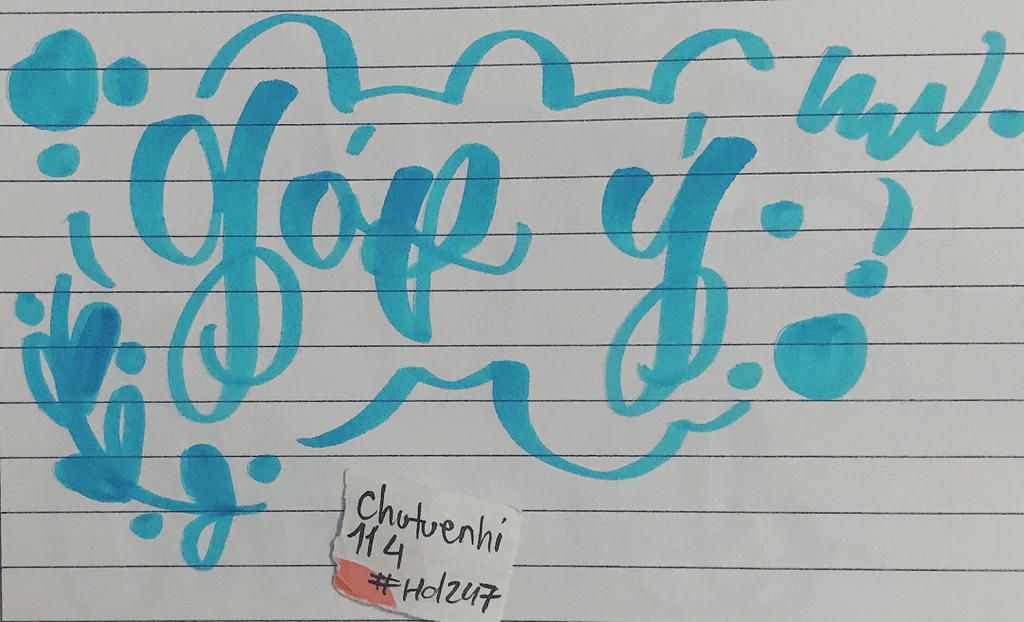 góp ý
Chutuenhi
114
#Hd247